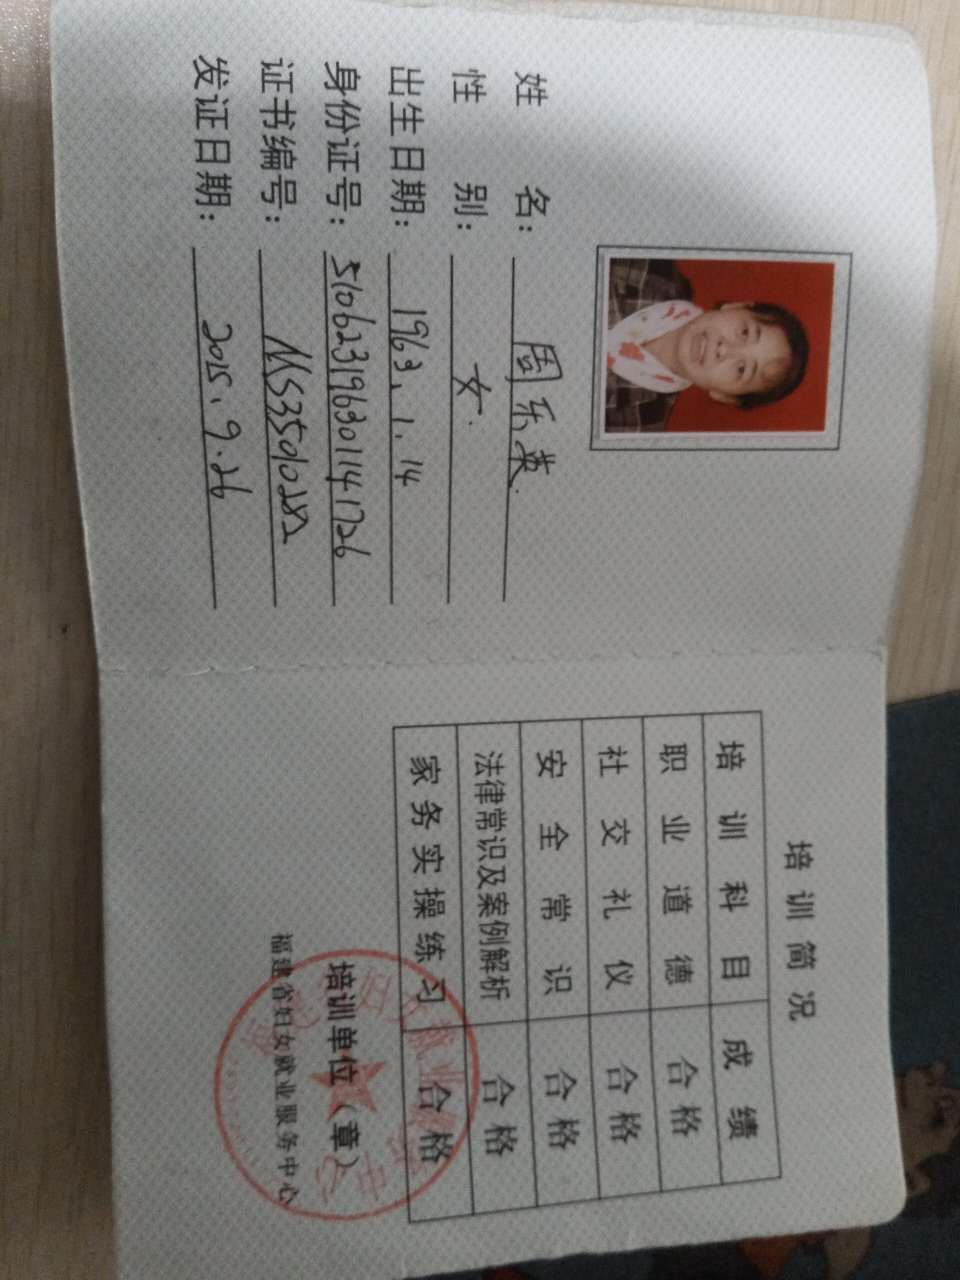 姓 名： 周乐英.
性 别： 女.
出生日期： 1963.1.14
身份证号： 510623196301141726
证书编号： MS35010282
发证日期： 2015.9.26
培训简况
培训科目 成绩
职业道德 合格
社交礼仪 合格
安全常识 合格
法律常识及案例解析 合格
家务实操练习 合格
培训单位（章）
福建省妇女就业服务中心